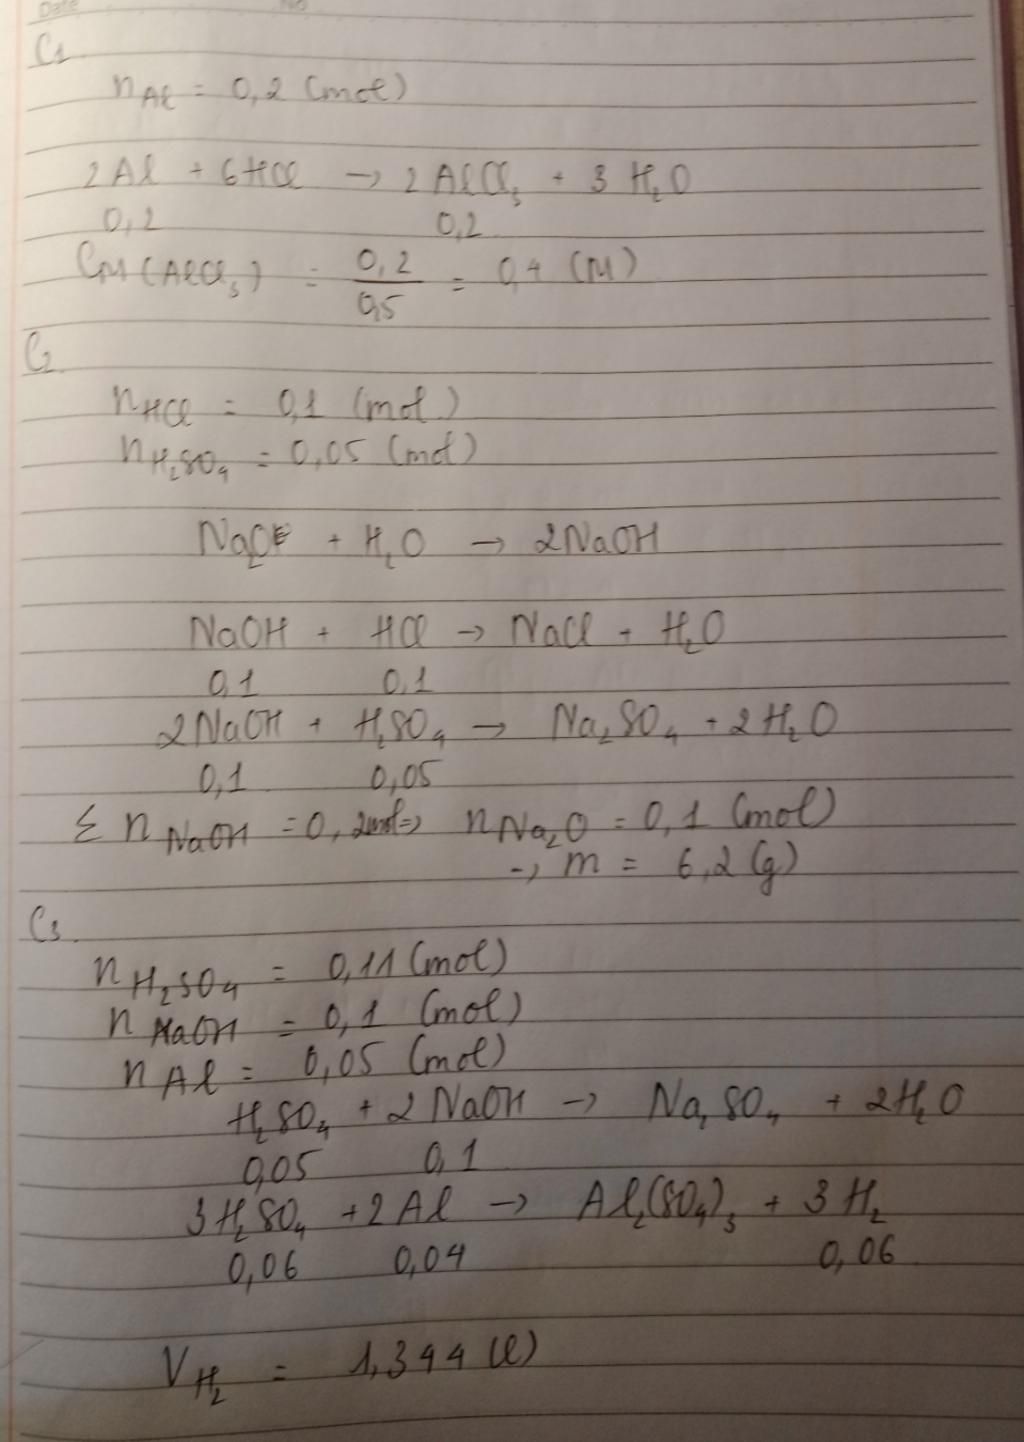 Date No
C1
nAl = 0,2 (mol)
2Al + 6HCl → 2AlCl3 + 3H2O
0,2 0,2
CM(AlCl3) = 0,2/0,5 = 0,4 (M)
C2
nHCl = 0,1 (mol)
nH2SO4 = 0,05 (mol)
Na2O + H2O → 2NaOH
NaOH + HCl → NaCl + H2O
0,1 0,1
2NaOH + H2SO4 → Na2SO4 + 2H2O
0,1 0,05
Σ nNaOH = 0,2mol => nNa2O = 0,1 (mol)
→ m = 6,2 (g)
C3
nH2SO4 = 0,11 (mol)
nNaOH = 0,1 (mol)
nAl = 0,05 (mol)
H2SO4 + 2NaOH → Na2SO4 + 2H2O
0,05 0,1
3H2SO4 + 2Al → Al2(SO4)3 + 3H2
0,06 0,04 0,06
VH2 = 1,344 (l)